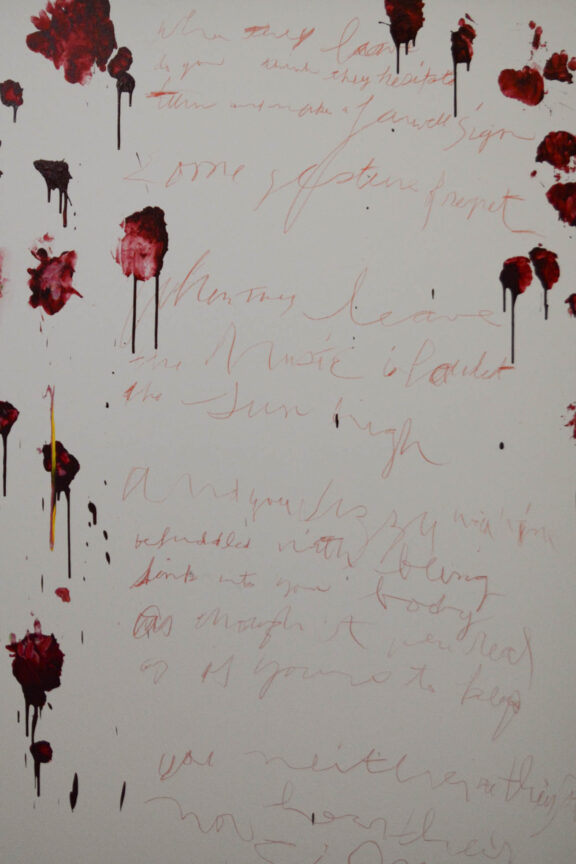 when they leave
do you think they hesitate
turn and make a farewell sign
some gesture of regret
when they leave
the music is loudest
the sun high
and you dizzy with wine
befuddled with being
sink into your body
as though it were real
as if yours to keep
you neither their
nor hear their